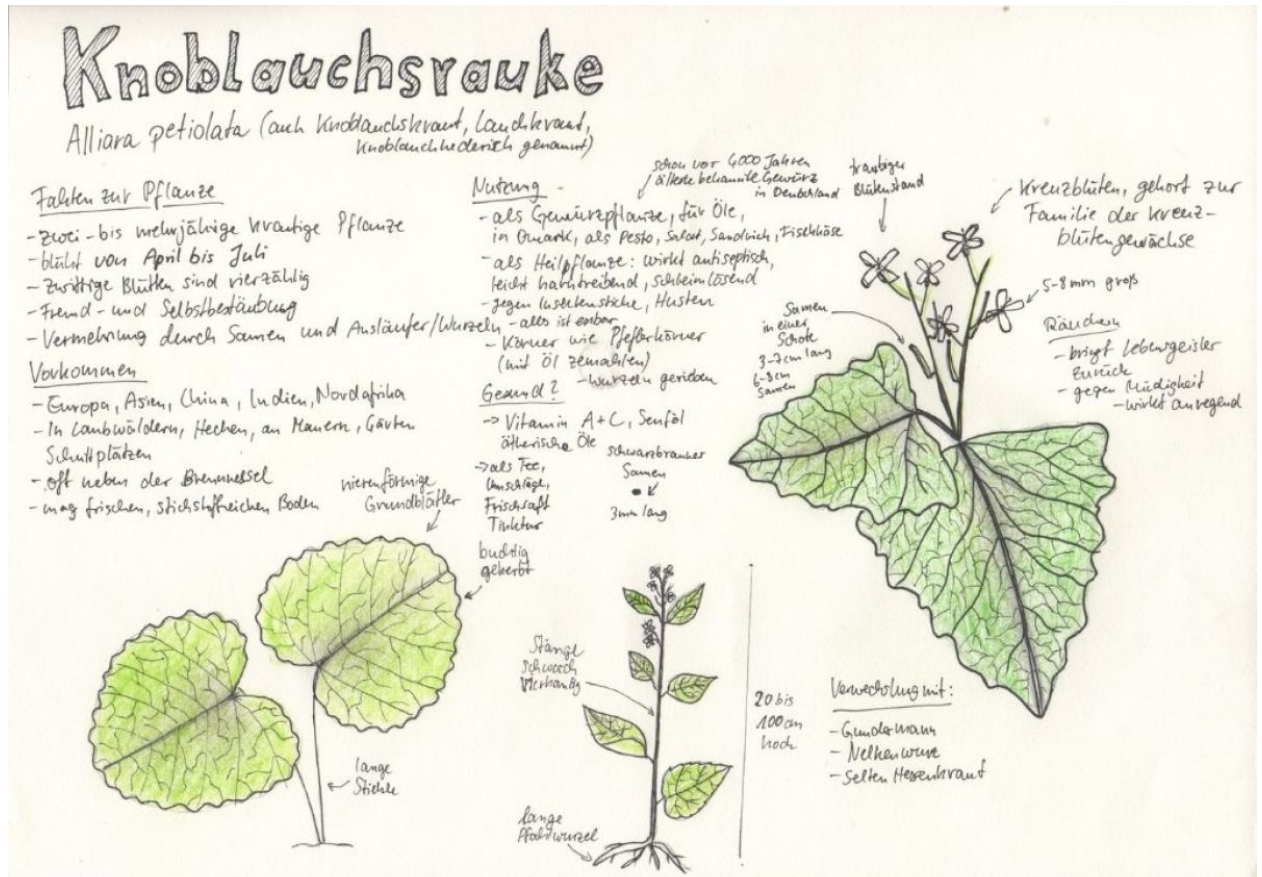 Knoblauchsrauke
Alliara petiolata (auch Knoblauchskraut, Lauchkraut,
Knoblauchhederich genannt)
Fakten zur Pflanze
- zwei- bis mehrjährige krautige Pflanze
- blüht von April bis Juli
- zwittrige Blüten sind vierzählig
- Fremd- und Selbstbestäubung
- Vermehrung durch Samen und Ausläufer/Wurzeln
Vorkommen
- Europa, Asien, China, Indien, Nordafrika
- In Laubwäldern, Hecken, an Mauern, Gärten
Schuttplätzen
- oft neben der Brennnessel
- mag frischen, stickstoffreichen Boden
nierenförmige
Grundblätter
buchtig
gekerbt
lange
Stiehle
Nutzung -
schon vor 4000 Jahren
älteste bekannte Gewürz
in Deutschland
- als Gewürzpflanze, für Öle,
in Quark, als Pesto, Salat, Sandwich, Fischkäse
- als Heilpflanze: wirkt antiseptisch,
leicht harntreibend, schleimlösend
- gegen Insektenstiche, Husten
- alles ist essbar
- Körner wie Pfefferkörner
(mit Öl zermahlen)
- Wurzeln gerieben
Gesund?
-> Vitamin A+C, Senföl
ätherische Öle
-> als Tee,
Umschläge,
Frischsaft
Tinktur
schwarzbrauner
Samen
3mm lang
traubiger
Blütenstand
Kreuzblüten, gehört zur
Familie der Kreuz-
blütengewächse
5-8mm groß
Samen
in einer
Schote
3-7cm lang
6-8
Samen
Räuchern
- bringt Lebensgeister
zurück
- gegen Müdigkeit
- wirkt anregend
Stängel
schwach
vierkantig
lange
Pfahlwurzel
20 bis
100cm
hoch
Verwechslung mit:
- Gundermann
- Nelkenwurz
- selten Hexenkraut